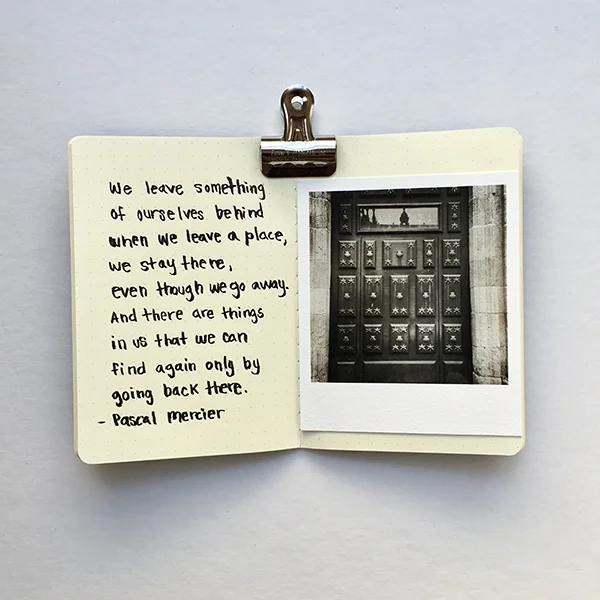 We leave something
of ourselves behind
when we leave a place,
we stay there,
even though we go away.
And there are things
in us that we can
find again only by
going back there.
- Pascal Mercier